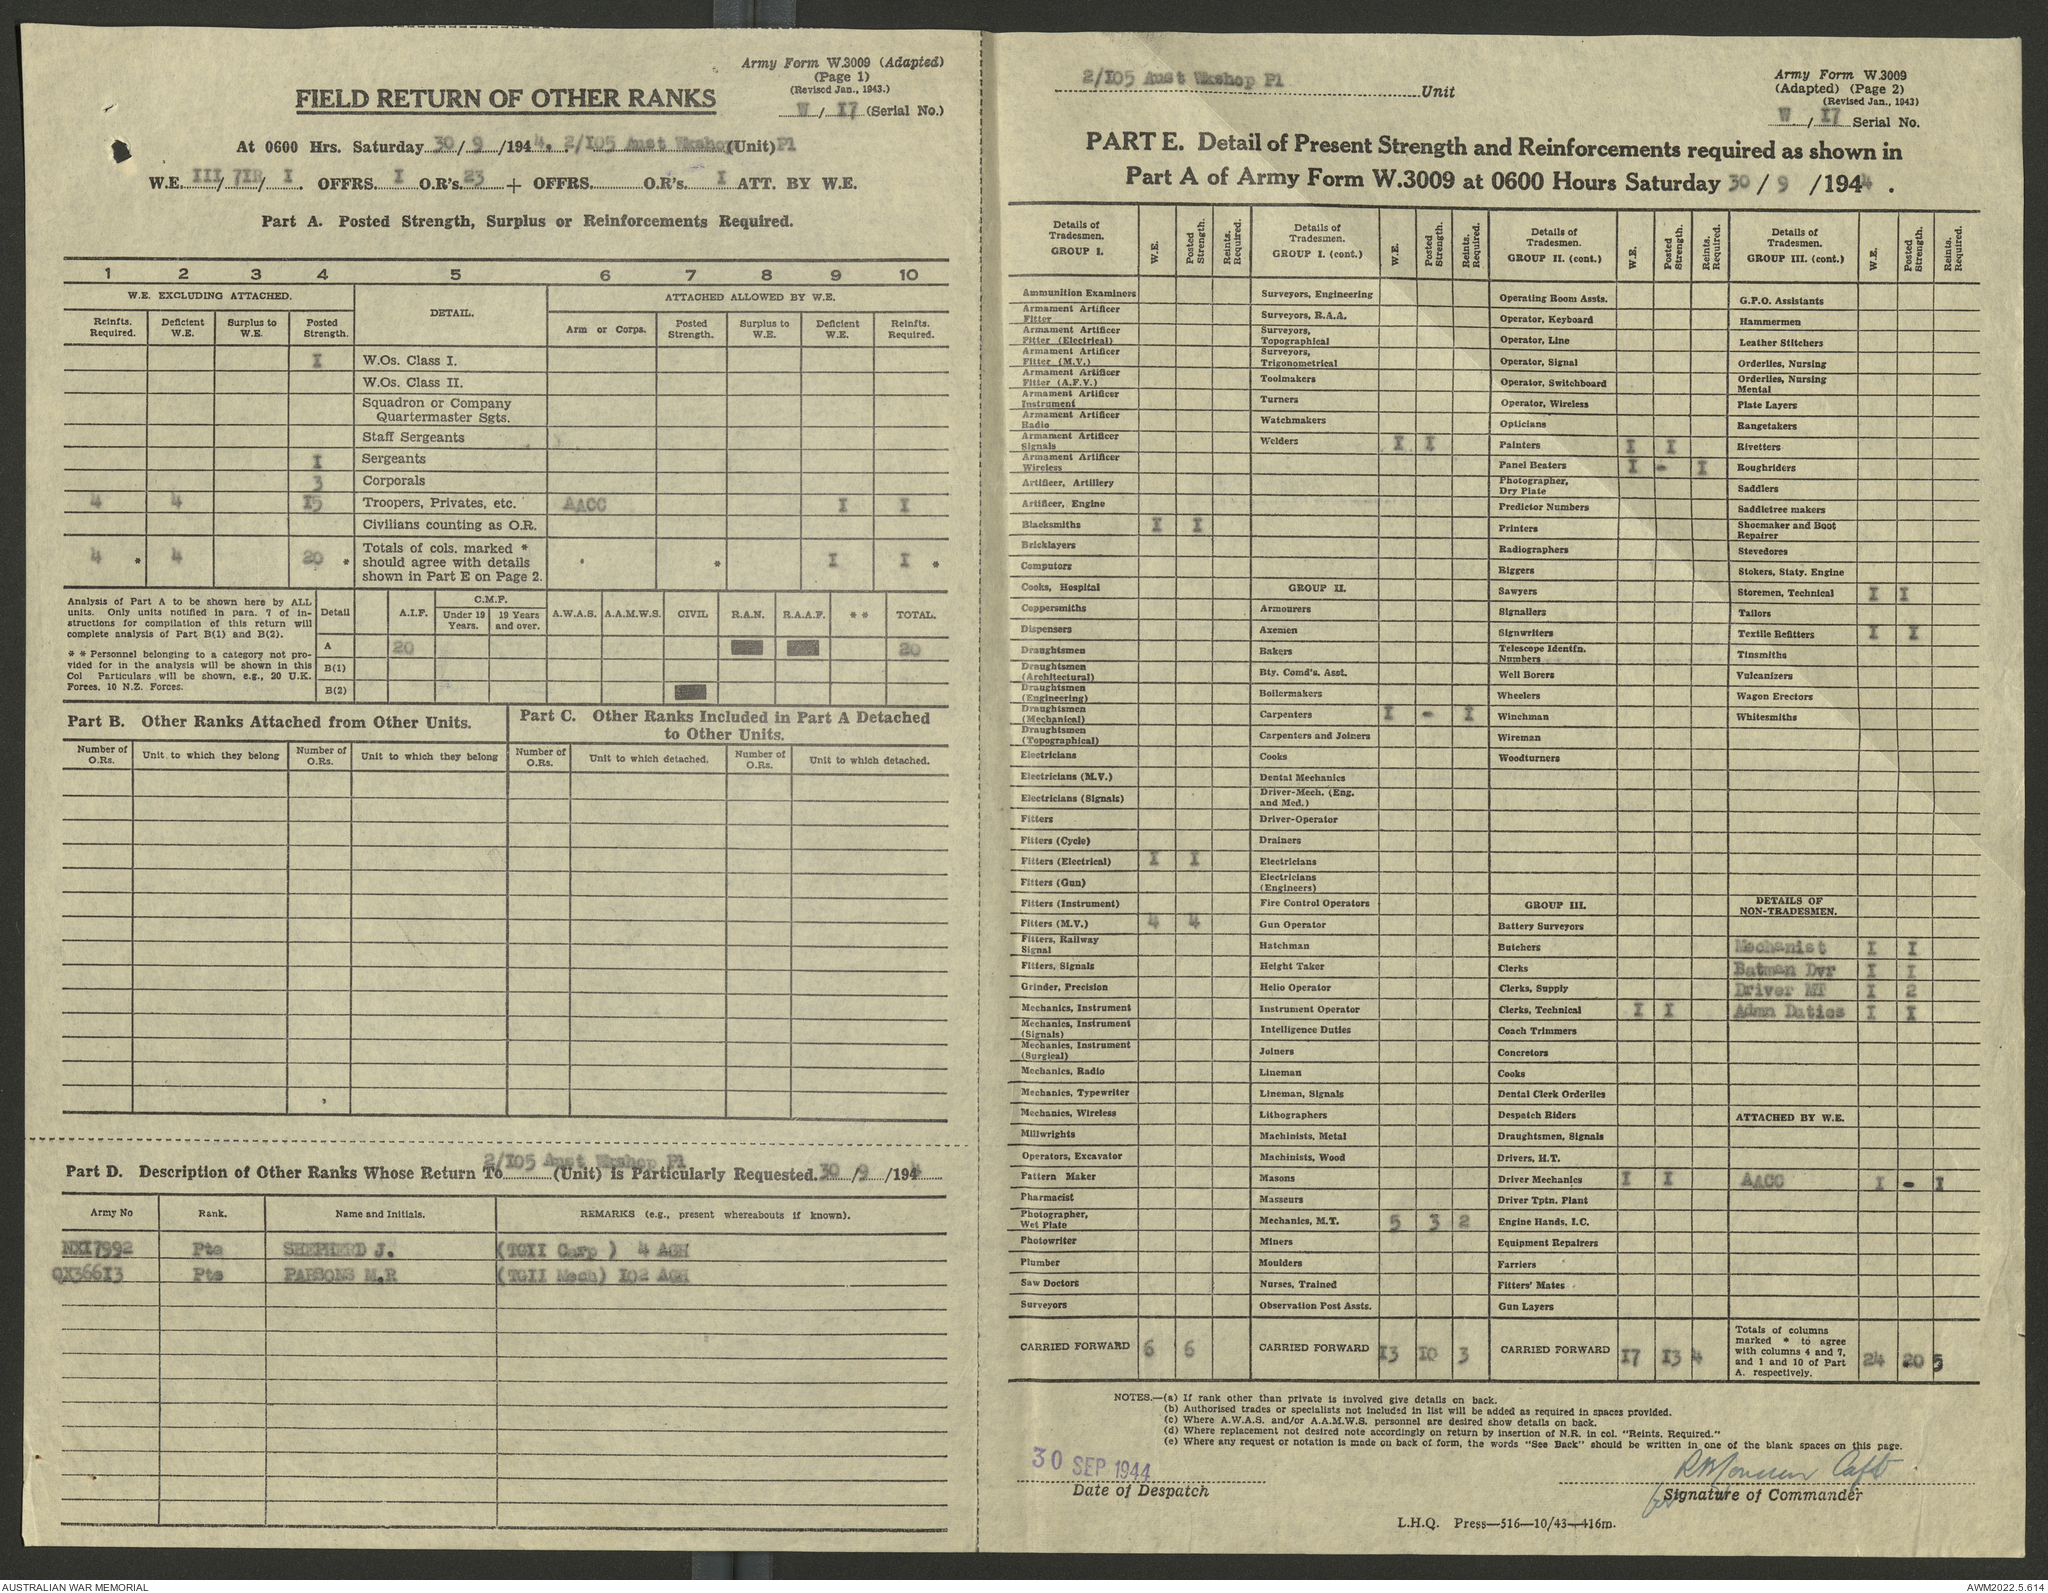 Army Form W.3009 (Adapted)
(Page 1)
(Revised Jan., 1943.)
W / I7 (Serial No.)
FIELD RETURN OF OTHER RANKS
At 0600 Hrs. Saturday 30/ 9 /1944. 2/I05 Aust Wkshop (Unit) Pl
W.E. III/ 7IB/ I. OFFRS. I O.R's. 23 + OFFRS. O.R's. I ATT. BY W.E.
Part A. Posted Strength, Surplus or Reinforcements Required.
1 2 3 4 5 6 7 8 9 10
W.E. EXCLUDING ATTACHED. DETAIL. ATTACHED ALLOWED BY W.E.
Reinfts. Required. Deficient W.E. Surplus to W.E. Posted Strength. Arm or Corps. Posted Strength. Surplus to W.E. Deficient W.E. Reinfts. Required.
I W.Os. Class I.
W.Os. Class II.
Squadron or Company
Quartermaster Sgts.
Staff Sergeants
I Sergeants
3 Corporals
4 4 I5 Troopers, Privates, etc. AACC I I
Civilians counting as O.R.
4 * 4 20 * Totals of cols. marked * should agree with details shown in Part E on Page 2. * I I *
Analysis of Part A to be shown here by ALL
units. Only units notified in para. 7 of in-
structions for compilation of this return will
complete analysis of Part B(1) and B(2).
* * Personnel belonging to a category not pro-
vided for in the analysis will be shown in this
Col Particulars will be shown, e.g., 20 U.K.
Forces, 10 N.Z. Forces.
Detail A.I.F. C.M.F. Under 19 Years. 19 Years and over. A.W.A.S. A.A.M.W.S. CIVIL R.A.N. R.A.A.F. * * TOTAL.
A 20 20
B(1)
B(2)
Part B. Other Ranks Attached from Other Units.
Part C. Other Ranks Included in Part A Detached
to Other Units.
Number of O.Rs. Unit to which they belong Number of O.Rs. Unit to which they belong Number of O.Rs. Unit to which detached. Number of O.Rs. Unit to which detached.
2/I05 Aust Wrshop Pl
Part D. Description of Other Ranks Whose Return To (Unit) is Particularly Requested. 30 /9 /1944
Army No Rank. Name and Initials. REMARKS (e.g., present whereabouts if known).
NXI7992 Pte SHEPHERD J. (TGII Carp ) 4 AGH
QX366I3 Pte PARSONS M.R (TGII Mech) I02 AGH
2/I05 Aust Wkshop Pl Unit
Army Form W.3009
(Adapted) (Page 2)
(Revised Jan., 1943)
W / I7 Serial No.
PART E. Detail of Present Strength and Reinforcements required as shown in
Part A of Army Form W.3009 at 0600 Hours Saturday 30 / 9 /1944 .
Details of Tradesmen. GROUP I. W.E. Posted Strength. Reints. Required.
Ammunition Examiners
Armament Artificer Fitter
Armament Artificer Fitter (Electrical)
Armament Artificer Fitter (M.V.)
Armament Artificer Fitter (A.F.V.)
Armament Artificer Instrument
Armament Artificer Radio
Armament Artificer Signals
Armament Artificer Wireless
Artificer, Artillery
Artificer, Engine
Blacksmiths I I
Bricklayers
Computors
Cooks, Hospital
Coppersmiths
Dispensers
Draughtsmen
Draughtsmen (Architectural)
Draughtsmen (Engineering)
Draughtsmen (Mechanical)
Draughtsmen (Topographical)
Electricians
Electricians (M.V.)
Electricians (Signals)
Fitters
Fitters (Cycle)
Fitters (Electrical) I I
Fitters (Gun)
Fitters (Instrument)
Fitters (M.V.) 4 4
Fitters, Railway Signal
Fitters, Signals
Grinder, Precision
Mechanics, Instrument
Mechanics, Instrument (Signals)
Mechanics, Instrument (Surgical)
Mechanics, Radio
Mechanics, Typewriter
Mechanics, Wireless
Millwrights
Operators, Excavator
Pattern Maker
Pharmacist
Photographer, Wet Plate
Photowriter
Plumber
Saw Doctors
Surveyors
CARRIED FORWARD 6 6
Details of Tradesmen. GROUP I. (cont.) W.E. Posted Strength. Reints. Required.
Surveyors, Engineering
Surveyors, R.A.A.
Surveyors, Topographical
Surveyors, Trigonometrical
Toolmakers
Turners
Watchmakers
Welders I I
GROUP II.
Armourers
Axemen
Bakers
Bty. Comd's. Asst.
Boilermakers
Carpenters I - I
Carpenters and Joiners
Cooks
Dental Mechanics
Driver-Mech. (Eng. and Med.)
Driver-Operator
Drainers
Electricians
Electricians (Engineers)
Fire Control Operators
Gun Operator
Hatchman
Height Taker
Helio Operator
Instrument Operator
Intelligence Duties
Joiners
Lineman
Lineman, Signals
Lithographers
Machinists, Metal
Machinists, Wood
Masons
Masseurs
Mechanics, M.T. 5 3 2
Miners
Moulders
Nurses, Trained
Observation Post Assts.
CARRIED FORWARD I3 I0 3
Details of Tradesmen. GROUP II. (cont.) W.E. Posted Strength. Reints. Required.
Operating Room Assts.
Operator, Keyboard
Operator, Line
Operator, Signal
Operator, Switchboard
Operator, Wireless
Opticians
Painters I I
Panel Beaters I - I
Photographer, Dry Plate
Predictor Numbers
Printers
Radiographers
Riggers
Sawyers
Signallers
Signwriters
Telescope Identfn. Numbers
Well Borers
Wheelers
Winchman
Wireman
Woodturners
GROUP III.
Battery Surveyors
Butchers
Clerks
Clerks, Supply
Clerks, Technical I I
Coach Trimmers
Concretors
Cooks
Dental Clerk Orderlies
Despatch Riders
Draughtsmen, Signals
Drivers, H.T.
Driver Mechanics I I
Driver Tptn. Plant
Engine Hands, I.C.
Equipment Repairers
Farriers
Fitters' Mates
Gun Layers
CARRIED FORWARD I7 I3 4
Details of Tradesmen. GROUP III. (cont.) W.E. Posted Strength. Reints Required.
G.P.O. Assistants
Hammermen
Leather Stitchers
Orderlies, Nursing
Orderlies, Nursing Mental
Plate Layers
Rangetakers
Rivetters
Roughriders
Saddlers
Saddletree makers
Shoemaker and Boot Repairer
Stevedores
Stokers, Staty. Engine
Storemen, Technical I I
Tailors
Textile Refitters I I
Tinsmiths
Vulcanizers
Wagon Erectors
Whitesmiths
DETAILS OF NON-TRADESMEN.
Mechanist I I
Batman Dvr I I
Driver MT I 2
Admn Duties I I
ATTACHED BY W.E.
AACC I - I
Totals of columns marked * to agree with columns 4 and 7, and 1 and 10 of Part A. respectively. 24 20 5
NOTES.—(a) If rank other than private is involved give details on back.
(b) Authorised trades or specialists not included in list will be added as required in spaces provided.
(c) Where A.W.A.S. and/or A.A.M.W.S. personnel are desired show details on back.
(d) Where replacement not desired note accordingly on return by insertion of N.R. in col. "Reints. Required."
(e) Where any request or notation is made on back of form, the words "See Back" should be written in one of the blank spaces on this page.
30 SEP 1944
Date of Despatch
Capt
for Signature of Commander
L.H.Q. Press—516—10/43—416m.
AUSTRALIAN WAR MEMORIAL
AWM2022.5.614